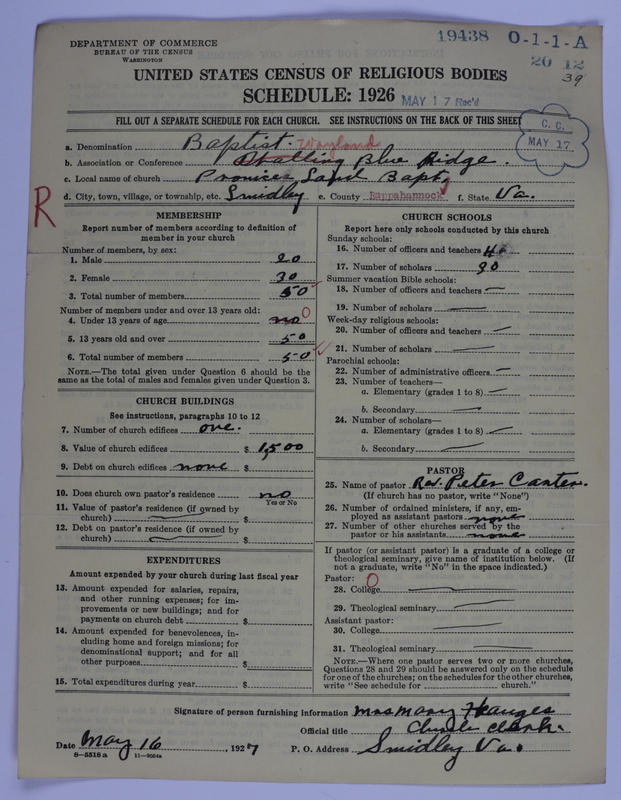 DEPARTMENT OF COMMERCE
BUREAU OF THE CENSUS
WASHINGTON
19438 0-1-1-A
20 12
39
UNITED STATES CENSUS OF RELIGIOUS BODIES
SCHEDULE: 1926 MAY 17 Rec'd
FILL OUT A SEPARATE SCHEDULE FOR EACH CHURCH. SEE INSTRUCTIONS ON THE BACK OF THIS SHEET
C. C.
MAY 17
a. Denomination Baptist. Wayland
b. Association or Conference Blue Ridge.
c. Local name of church Promices Land Bapt,
d. City, town, village, or township, etc. Smidley e. County Rappahannock f. State Va.
R
MEMBERSHIP
Report number of members according to definition of
member in your church
Number of members, by sex:
1. Male 20
2. Female 30
3. Total number of members 50
Number of members under and over 13 years old:
4. Under 13 years of age no 0
5. 13 years old and over 50
6. Total number of members 50
NOTE.—The total given under Question 6 should be the
same as the total of males and females given under Question 3.
CHURCH BUILDINGS
See instructions, paragraphs 10 to 12
7. Number of church edifices one.
8. Value of church edifices $ 1,500
9. Debt on church edifices none $
10. Does church own pastor's residence no
Yes or No
11. Value of pastor's residence (if owned by
church) $
12. Debt on pastor's residence (if owned by
church) $
EXPENDITURES
Amount expended by your church during last fiscal year
13. Amount expended for salaries, repairs,
and other running expenses; for im-
provements or new buildings; and for
payments on church debt $
14. Amount expended for benevolences, in-
cluding home and foreign missions; for
denominational support; and for all
other purposes $
15. Total expenditures during year $
CHURCH SCHOOLS
Report here only schools conducted by this church
Sunday schools:
16. Number of officers and teachers
17. Number of scholars 90
Summer vacation Bible schools:
18. Number of officers and teachers
19. Number of scholars
Week-day religious schools:
20. Number of officers and teachers
21. Number of scholars
Parochial schools:
22. Number of administrative officers
23. Number of teachers—
a. Elementary (grades 1 to 8)
b. Secondary
24. Number of scholars—
a. Elementary (grades 1 to 8)
b. Secondary
PASTOR
25. Name of pastor Rev. Peter Carter.
(If church has no pastor, write "None")
26. Number of ordained ministers, if any, em-
ployed as assistant pastors none
27. Number of other churches served by the
pastor or his assistants none
If pastor (or assistant pastor) is a graduate of a college or
theological seminary, give name of institution below. (If
not a graduate, write "No" in the space indicated.)
Pastor: O
28. College
29. Theological seminary
Assistant pastor:
30. College
31. Theological seminary
NOTE.—Where one pastor serves two or more churches,
Questions 28 and 29 should be answered only on the schedule
for one of the churches; on the schedules for the other churches,
write "See schedule for church."
Signature of person furnishing information Mrs Mary
Official title Church Clerk.
Date May 16, 1927 P. O. Address Smidley Va.
8—5518 a 11—9054a